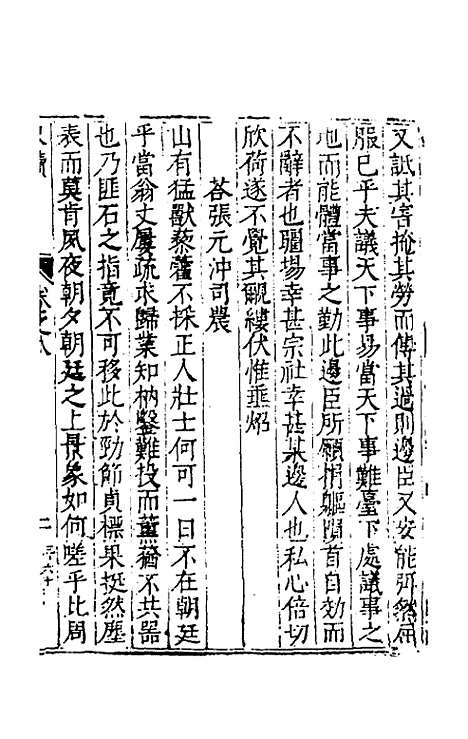 又詆其害掩其勞而傳其過則邊臣又安能弭然屈
服已乎夫議天下事易當天下事難臺下處議事之
地而能體當事之勤此邊臣所願捐軀隕首自効而
不辭者也疆場幸甚宗社幸甚某邊人也私心倍切
欣荷遂不覺其覼縷伏惟垂炤
荅張元沖司農
山有猛獸藜藿不採正人壯士何可一日不在朝廷
平當翁丈屢疏求歸業知枘鑿難投而薰蕕不共器
也乃匪石之指竟不可移此於勁節貞標果挺然塵
表而莫肯夙夜朝夕朝廷之上景象如何嗟乎比周
卷之八
二